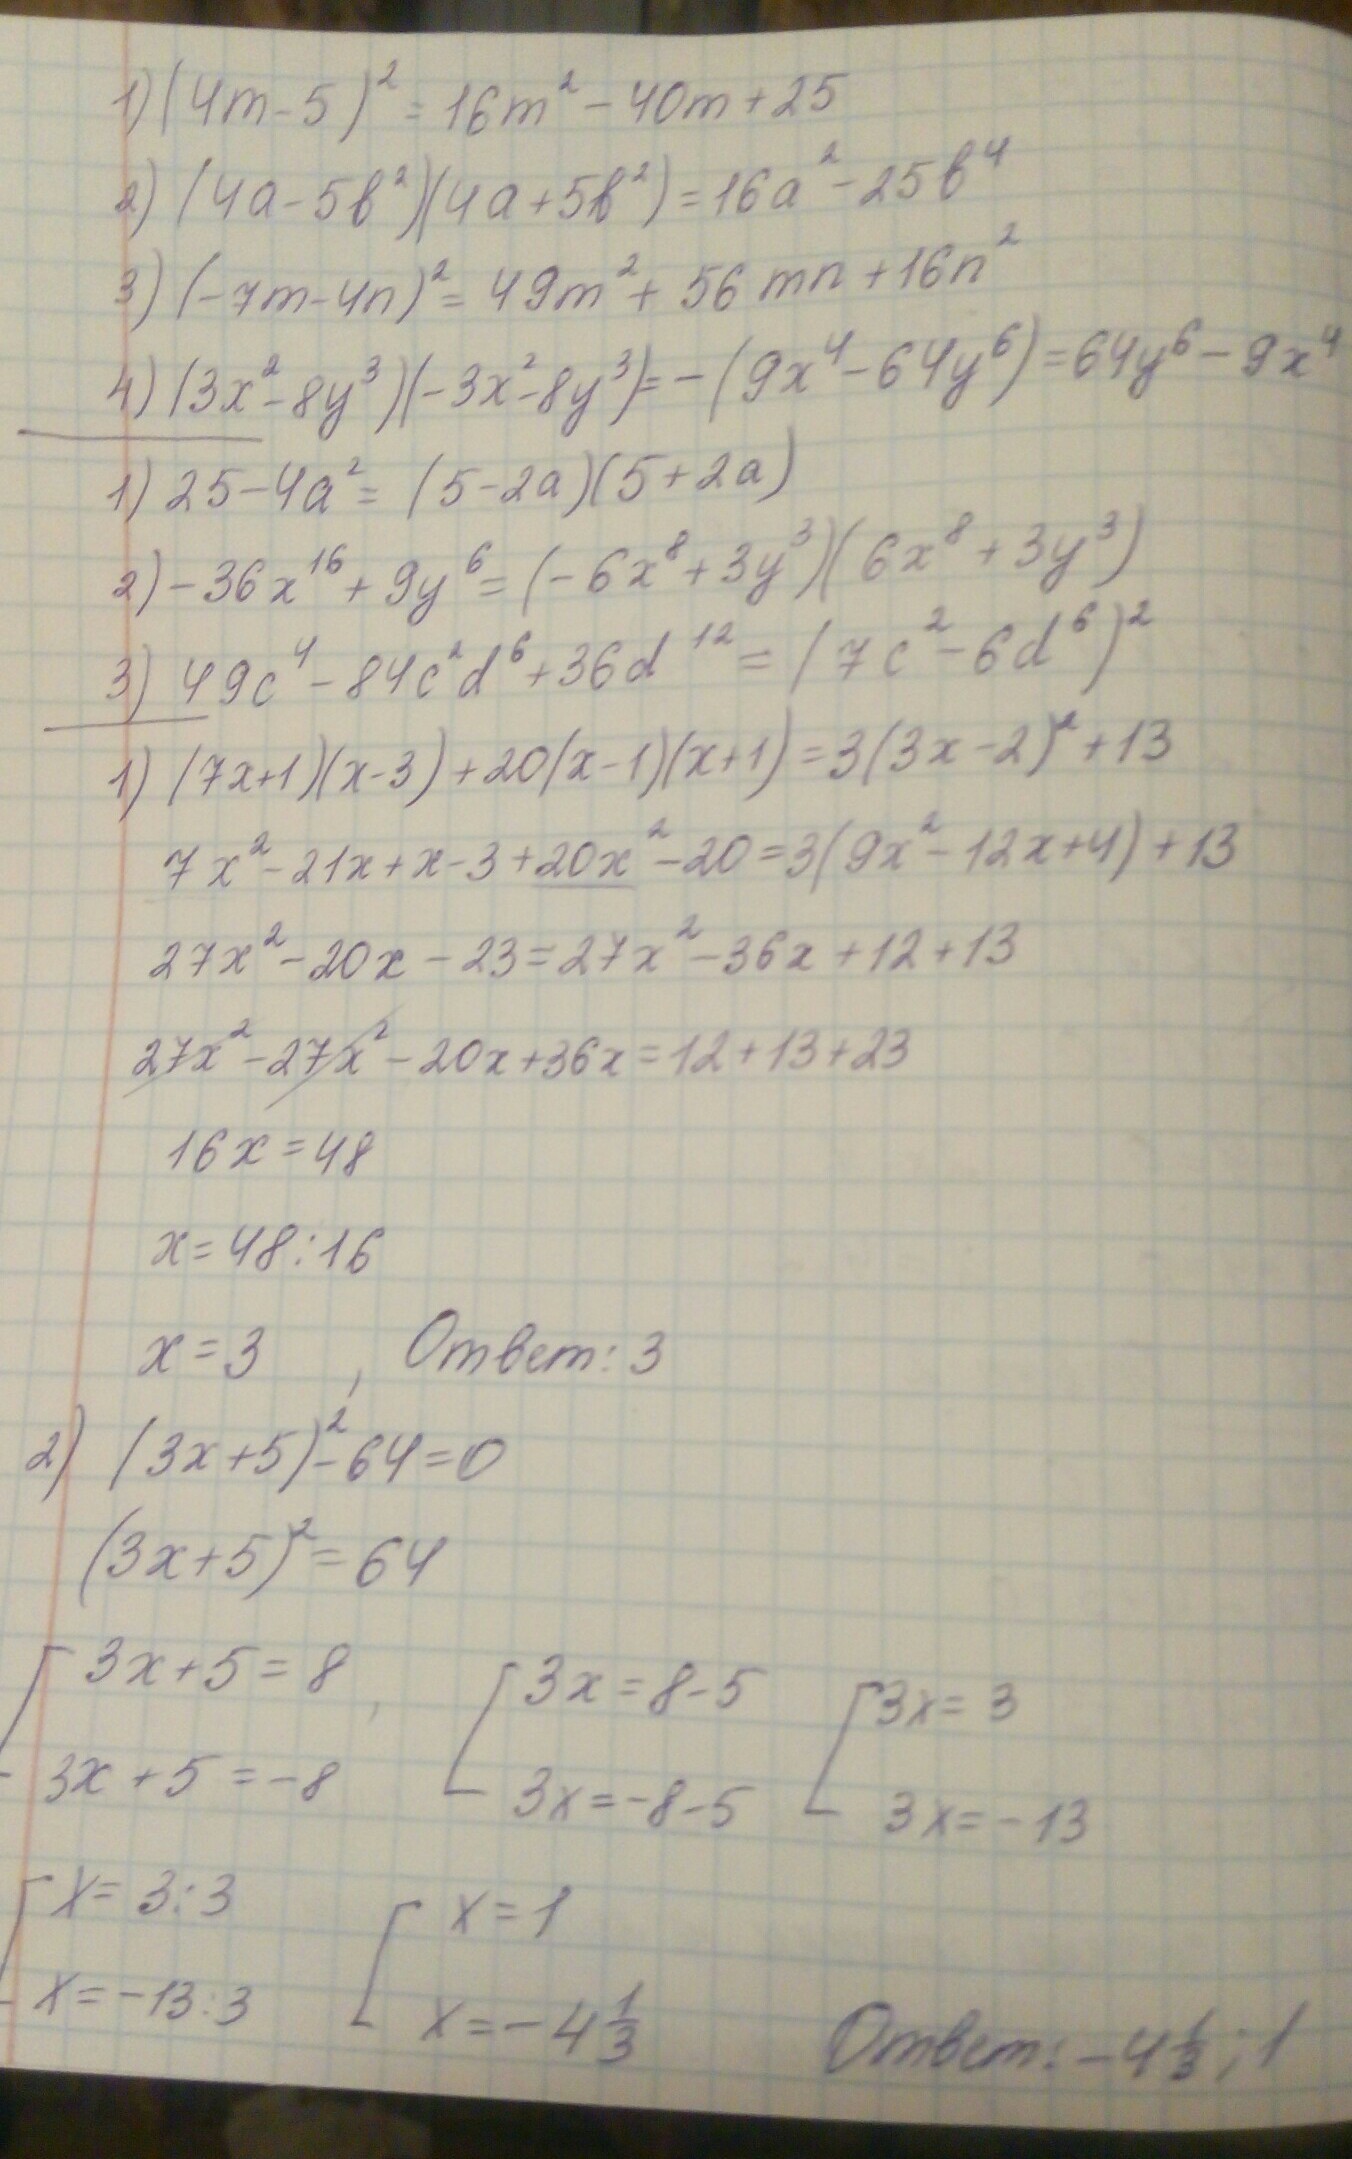 1) (4m-5)² = 16m² - 40m + 25
2) (4a-5b²)(4a+5b²) = 16a² - 25b⁴
3) (-7m-4n)² = 49m² + 56mn + 16n²
4) (3x²-8y³)(-3x²-8y³) = -(9x⁴-64y⁶) = 64y⁶ - 9x⁴
1) 25-4a² = (5-2a)(5+2a)
2) -36x¹⁶ + 9y⁶ = (-6x⁸+3y³)(6x⁸+3y³)
3) 49c⁴ - 84c²d⁶ + 36d¹² = (7c²-6d⁶)²
1) (7x+1)(x-3) + 20(x-1)(x+1) = 3(3x-2)² + 13
7x² - 21x + x - 3 + 20x² - 20 = 3(9x² - 12x + 4) + 13
27x² - 20x - 23 = 27x² - 36x + 12 + 13
27x² - 27x² - 20x + 36x = 12 + 13 + 23
16x = 48
x = 48:16
x = 3 , Ответ: 3
2) (3x+5)² - 64 = 0
(3x+5)² = 64
[3x+5 = 8, [3x = 8-5 [3x = 3
3x+5 = -8 3x = -8-5 3x = -13
[x = 3:3 [x = 1
x = -13:3 x = -4 1/3 Ответ: -4 1/3; 1